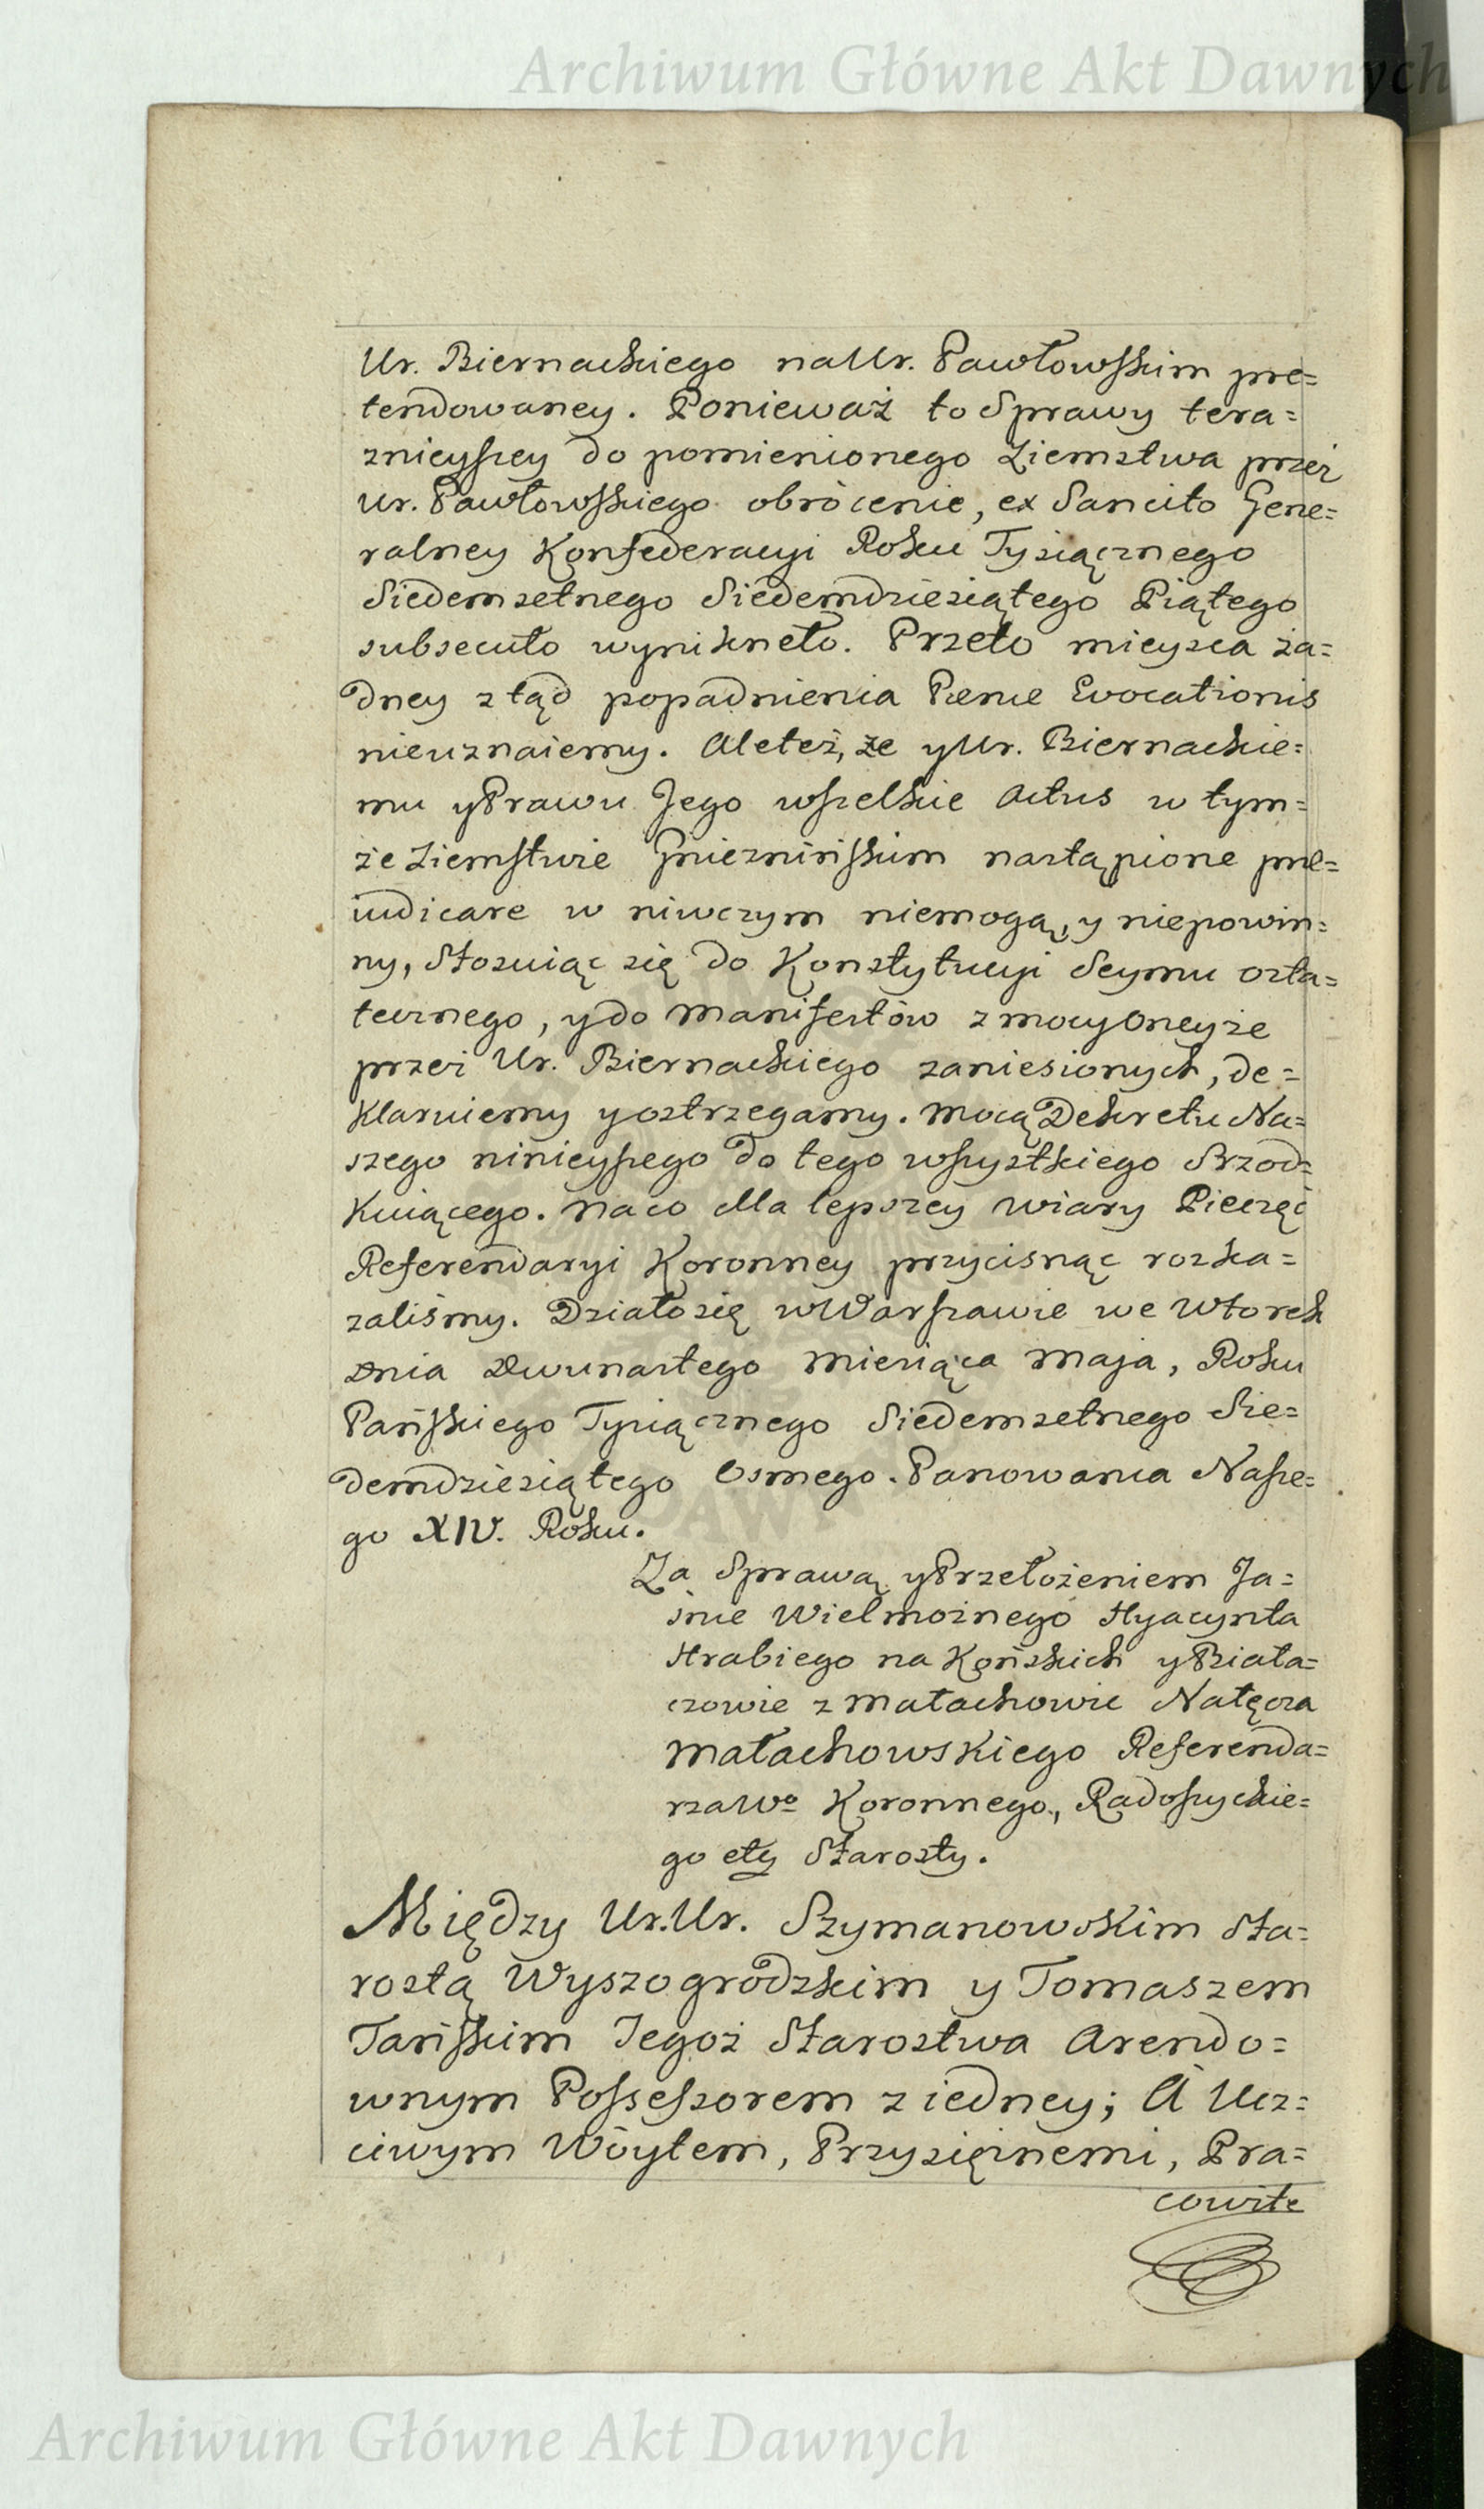 Archiwum Główne Akt Dawnych
Ur. Biernackiego na Ur. Pawłowskim pre=
tendowaney. Ponieważ to Sprawy tera=
znieyszey do pomienionego Ziemstwa przez
Ur. Pawłowskiego obrócenie, ex Sancito Gene=
ralney Konfederacyi Roku Tysiącznego
Siedemsetnego Siedemdziesiątego Piątego
subsecuto wynikneło. Przeto mieysca ża=
dney ztąd popadnienia Pænæ Evocationis
nieuznaiemy. Ale też, że y Ur. Biernackie=
mu y Prawu Jego wszelkie Actus w tym=
że Ziemstwie Gnieznińskim nastąpione præ=
iudicare w niwczym niemogą, y niepowin=
ny, Stosuiąc się do Konstytucyi Seymu osta=
tecznego, y do Manifestów z mocy Oneyże
przez Ur. Biernackiego zaniesionych, de=
klaruiemy y ostrzegamy. Mocą Dekretu Na=
szego ninieyszego do tego wszystkiego Srzod=
kuiącego. Na co dla lepszey wiary Pieczęć
Referendaryi Koronney przycisnąc rozka=
zaliśmy. Działo się w Warszawie we Wtorek
Dnia Dwunastego Miesiąca Maja, Roku
Pańskiego Tysiącznego Siedemsetnego Sie=
demdziesiątego Osmego. Panowania Nasze=
go XIV. Roku.
Za Sprawą y Przełożeniem Ja=
śnie Wielmożnego Hyacynta
Hrabiego na Końskich y Biała=
czowie z Małachowic Nałęcza
Małachowskiego Referenda=
rza Wo Koronnego, Radoszyckie=
go etc Starosty.
Między Ur.Ur. Szymanowskim Sta=
rostą Wyszogrodzkim y Tomaszem
Tańskim Tegoż Starostwa Arendo=
wnym Possessorem z iedney; A Ucz=
ciwym Wóytem, Przysiężnemi, Pra=
cowite
Archiwum Główne Akt Dawnych